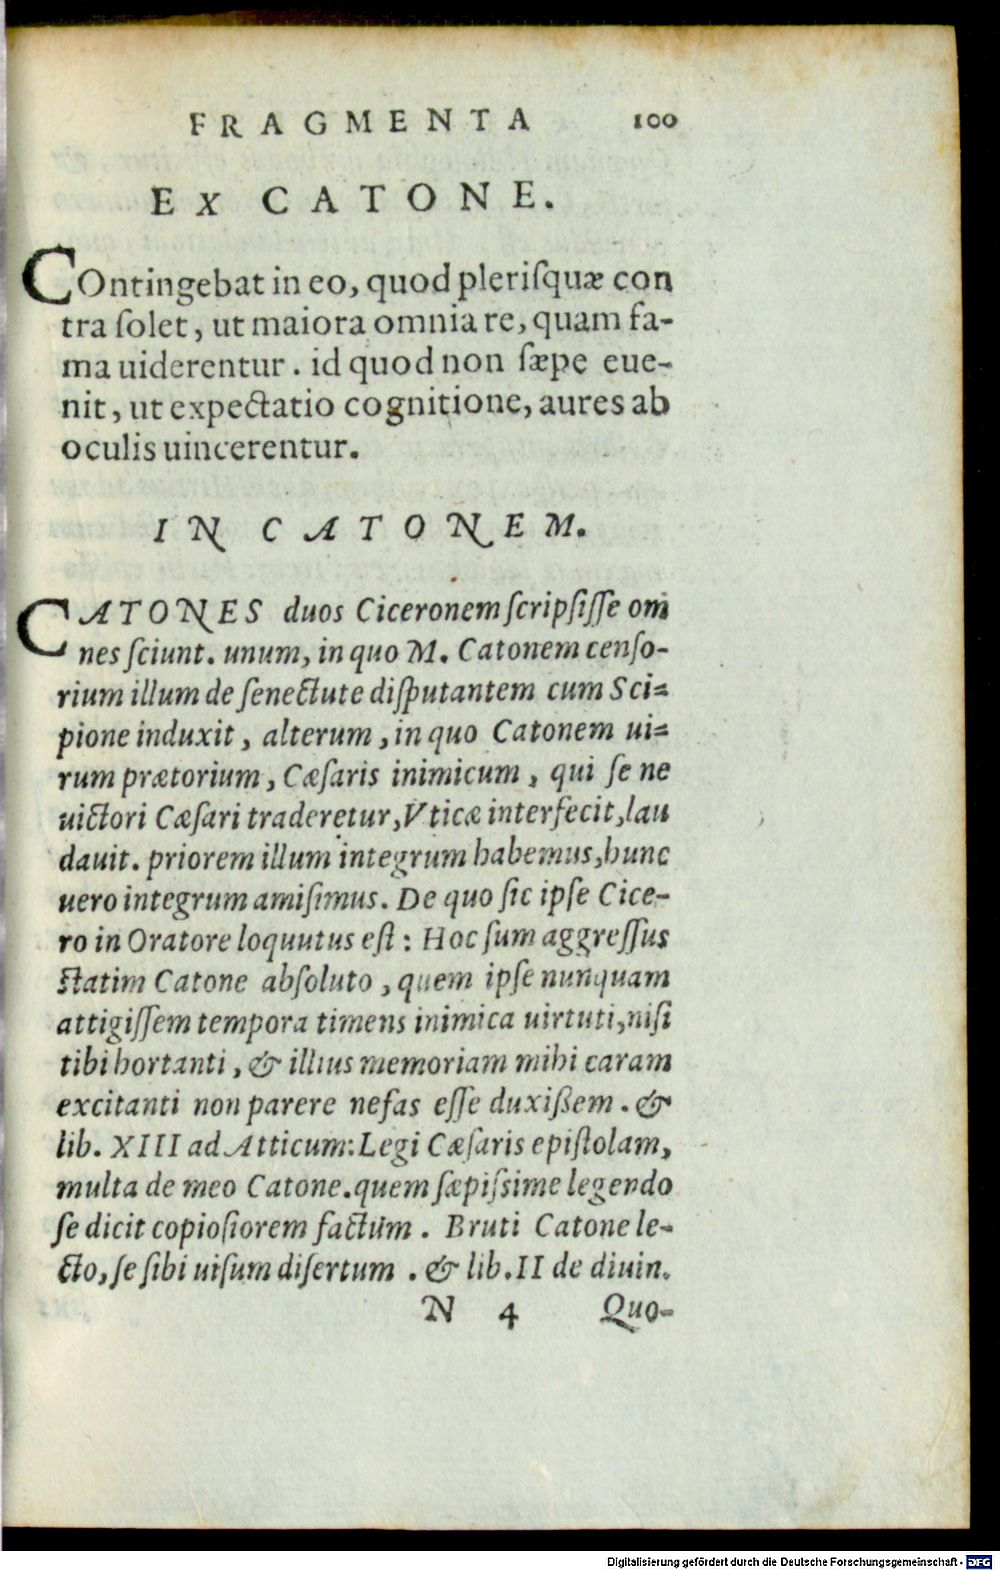 FRAGMENTA 100
EX CATONE.
COntingebat in eo, quod pleriſquæ con
tra ſolet, ut maiora omnia re, quam fa-
ma uiderentur. id quod non ſæpe eue-
nit, ut expectatio cognitione, aures ab
oculis uincerentur.
IN CATONEM.
CATONES duos Ciceronem ſcripſiſſe om
nes ſciunt. unum, in quo M. Catonem cenſo-
rium illum de ſenectute diſputantem cum Sci=
pione induxit, alterum, in quo Catonem ui=
rum prætorium, Cæſaris inimicum, qui ſe ne
uictori Cæſari traderetur, Vticæ interfecit, lau
dauit. priorem illum integrum habemus, hunc
uero integrum amiſimus. De quo ſic ipſe Cice-
ro in Oratore loquutus eſt: Hoc ſum aggreſſus
ſtatim Catone abſoluto, quem ipſe nunquam
attigiſſem tempora timens inimica uirtuti, niſi
tibi hortanti, & illius memoriam mihi caram
excitanti non parere nefas eſſe duxißem. &
lib. XIII ad Atticum: Legi Cæſaris epiſtolam,
multa de meo Catone. quem ſæpiſsime legendo
ſe dicit copioſiorem factum. Bruti Catone le-
cto, ſe ſibi uiſum diſertum. & lib. II de diuin.
N 4 Quo-
Digitalisierung gefördert durch die Deutsche Forschungsgemeinschaft - DFG